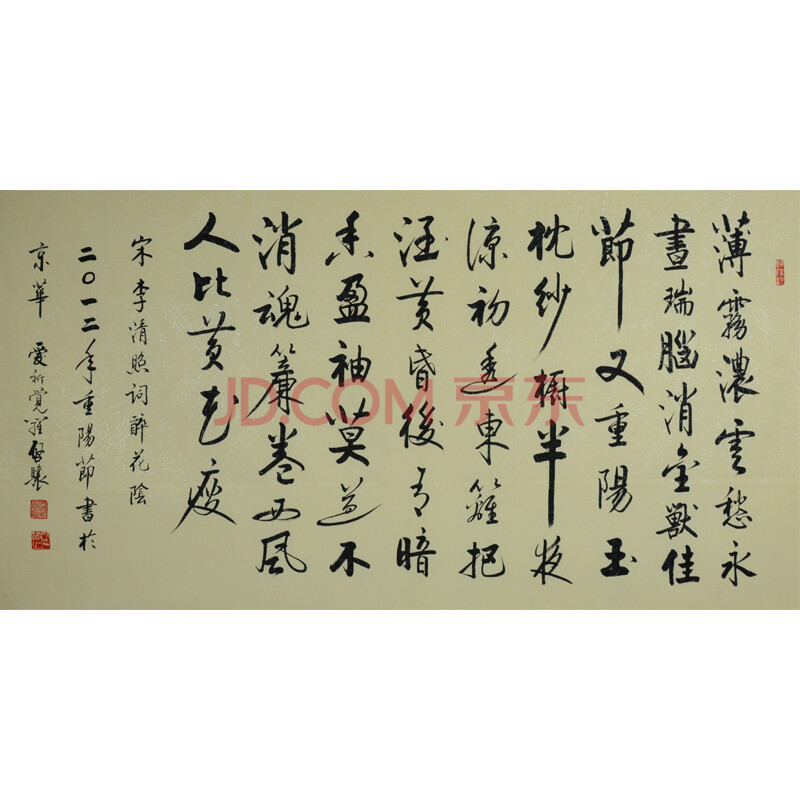 薄霧濃雲愁永
晝瑞腦消金獸佳
節又重陽玉
枕紗櫥半夜
涼初透東籬把
酒黃昏後有暗
香盈袖莫道不
消魂簾卷西風
人比黃花瘦
宋李清照詞醉花陰
二〇一二年重陽節書於
京華 愛新覺羅啟驤
JD.COM 京东